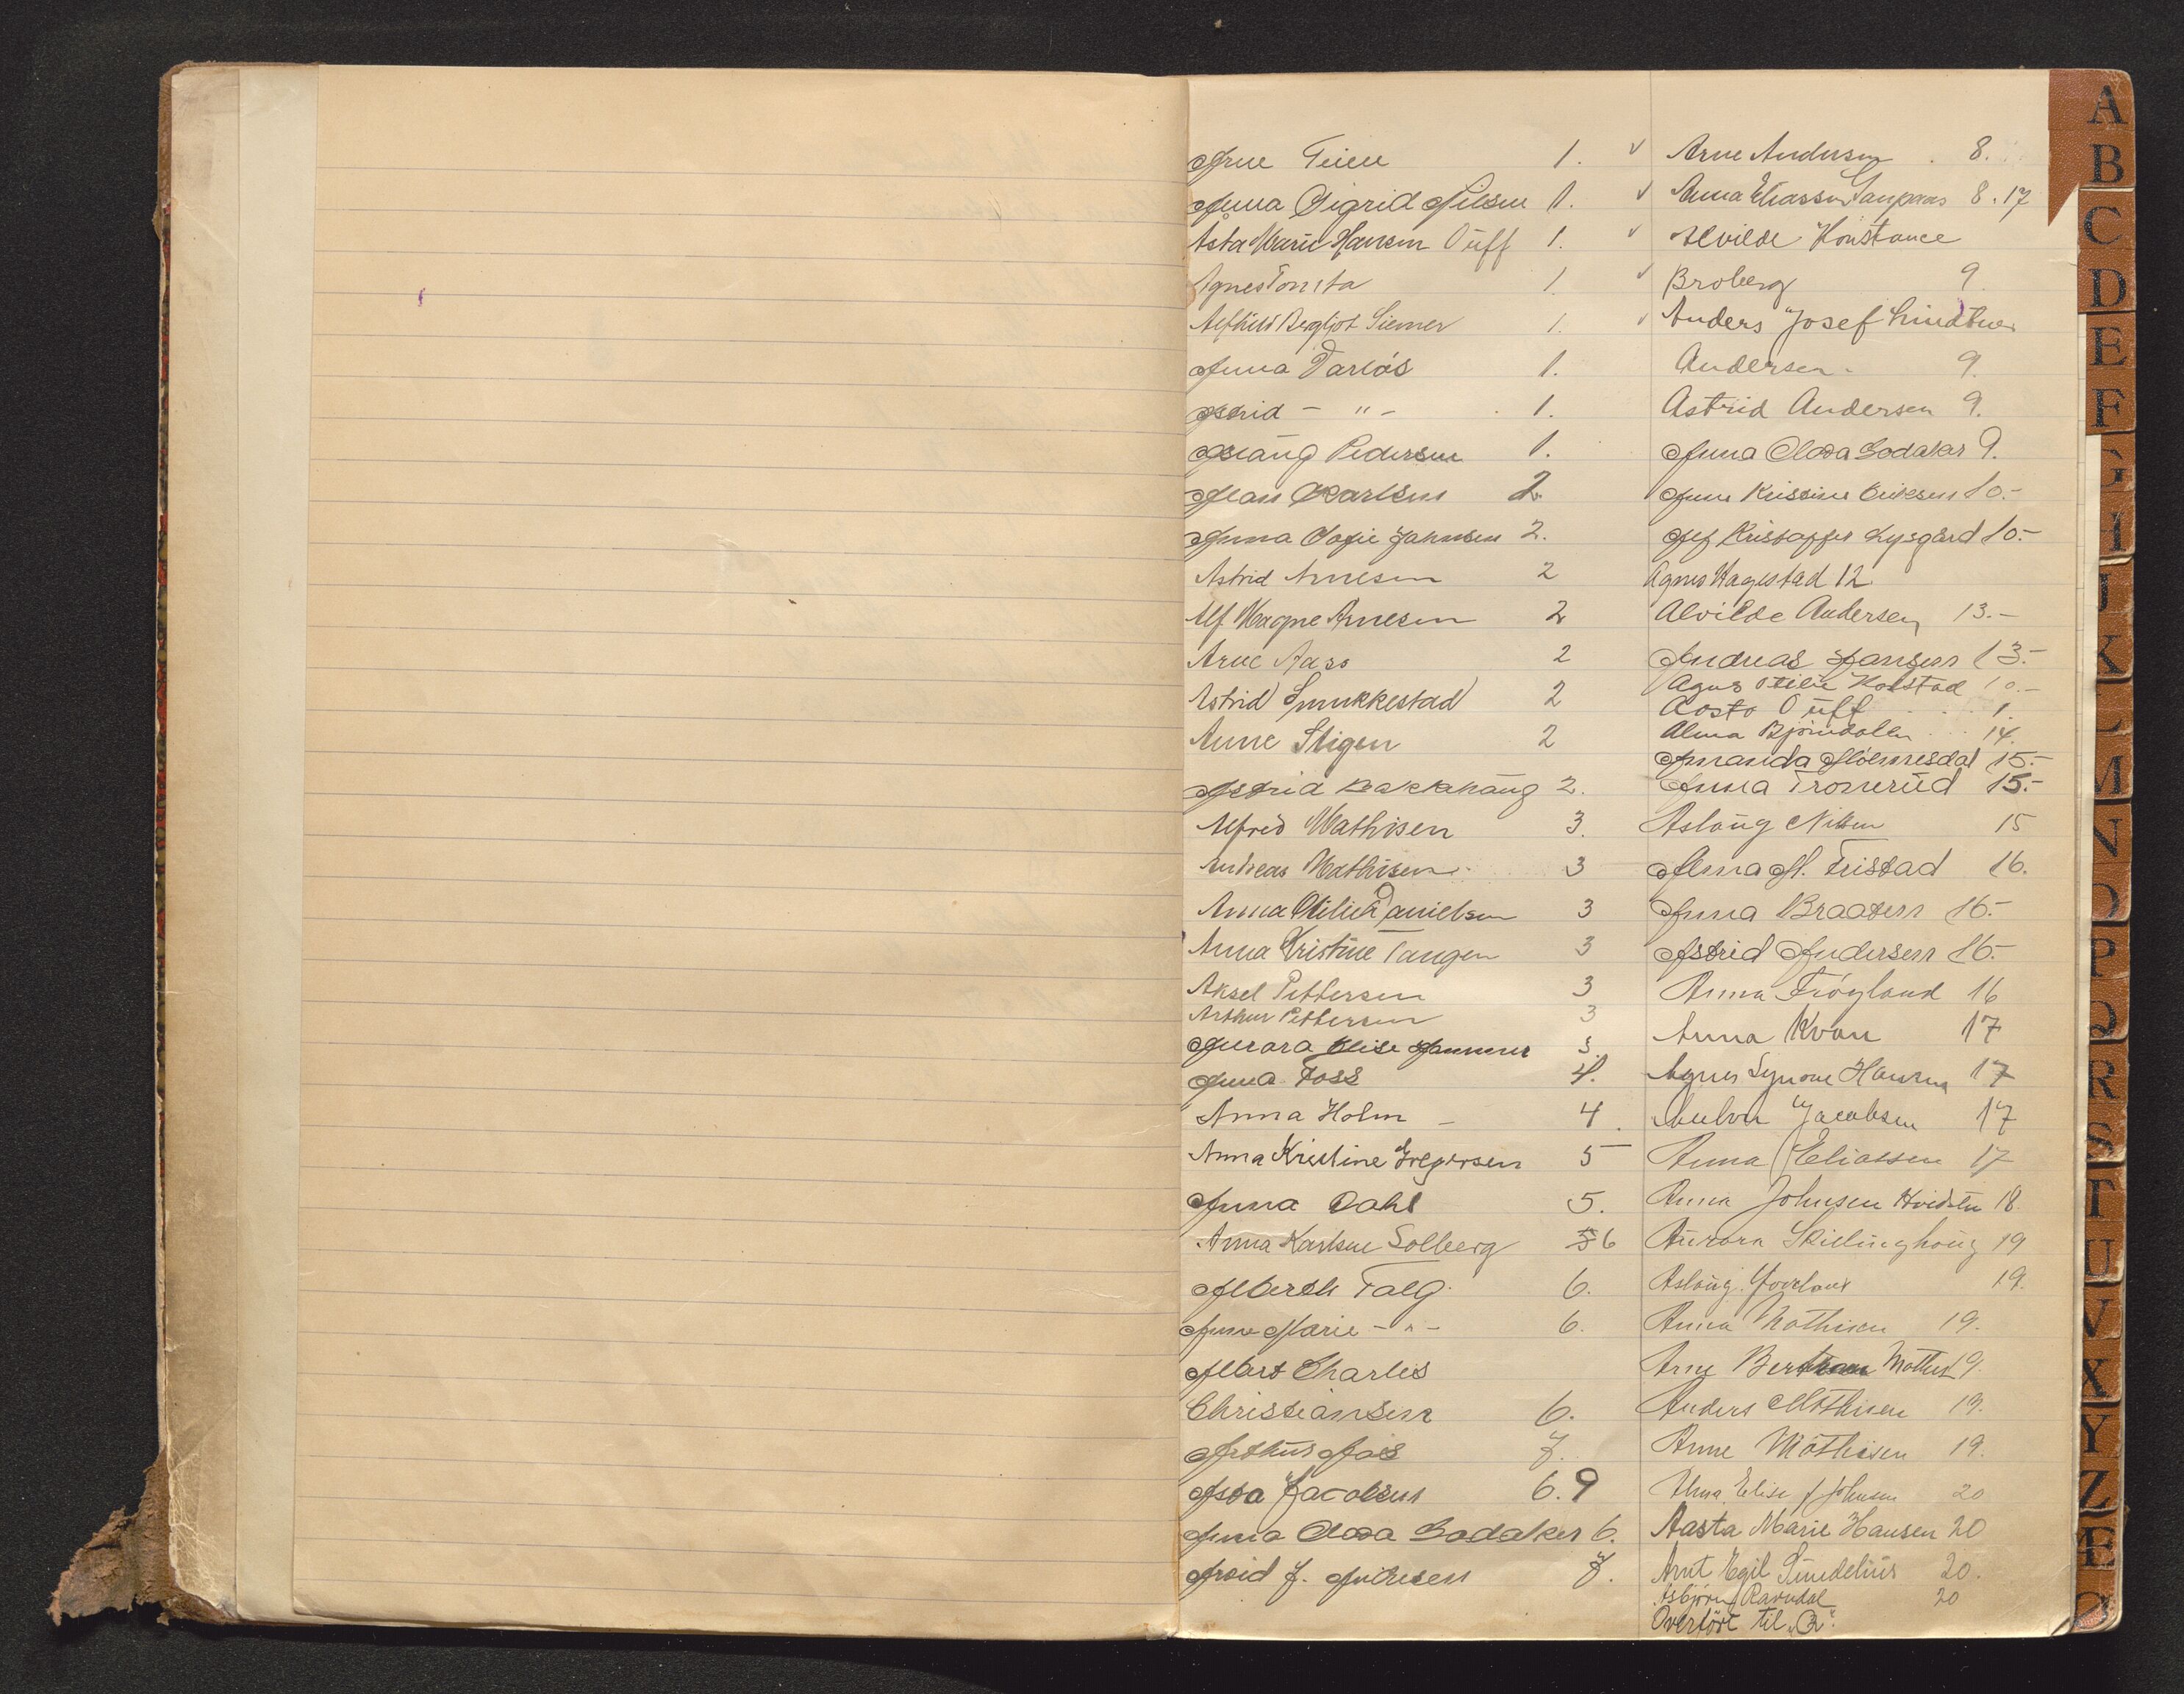 Arne Teien 1.
Anna Sigrid Nilsen 1.
Åsta Marie Hansen Üff 1.
Agnes Tomta 1.
Alfhild Bergljot Siemer 1.
Anna Darlös 1.
Astrid - " - 1.
Aslaug Pedersen 1.
Alan Karlsen 2.
Anna Sofie Johnsen 2.
Astrid Arnesen 2
Alf Magne Arnesen 2
Arne Aass 2
Astrid Spunkkestad 2
Anne Stigen 2
Astrid Bakkehaug 2.
Alfred Mathisen 3.
Andreas Mathisen 3
Anna Otilie Danielsen 3
Anna Kristine Tangen 3
Aksel Pettersen 3
Arthur Pettersen 3
Aurora Elise Hammer 3.
Anna Foss 4.
Anna Holm - 4.
Anna Kristine Gregersen 5
Anna Dahl 5.
Anna Karlsen Solberg 6
Alberth Talg 6.
Anne Marie - " - 6.
Albert Charles
Christiansen 6.
Arthur Aas 7.
Asta Jacobsen 6. 9
Anna Olava Sodaker 6.
Arvid J. Andresen 7.
√ Arne Andersen 8.
√ Anna Eliassen 8. 17
√ Alvilde Konstance
√ Broberg 9
√ Anders Josef Lindtner
Andersen 9.
Astrid Andersen 9.
Anna Olava Sodaker 9.
Anne Kristine Eriksen 10.-
Alf Kristoffer Lysgård 10.-
Agnes Hagestad 12.
Alvilde Andersen 13.-
Andreas Hansen 13.-
Agnes Otilie Kolstad 10.-
Aasta Üff 1.
Alma Bjørndalen 14.
Amanda 15.-
Anna Tronerud 15.-
Aslaug Nilsen 15
Anna M. Tristad 16.
Anna Braaten 16.-
Astrid Andersen 16.-
Anna Frøyland 16
Anna Kvan 17
Agnes Synove Hansen 17
Jacobsen 17
Anna Eliassen 17
Anna Johnsen Hvidsten 18
Aurora Skillinghaug 19
Aslaug 19.
Anna Mathisen 19.
Arne 19.
Anders Mathisen 19.
Anne Mathisen 19.
Alma Elise Johnsen 20
Aasta Marie Hansen 20
Arnt Egil Sundelius 20.
Asbjørn Ravndal 20
Overført til „Q".
A
B
C
D
E
F
G
H
I
K
L
M
N
O
P
Q
R
S
T
U
V
X
Y
Z
Æ
Ø